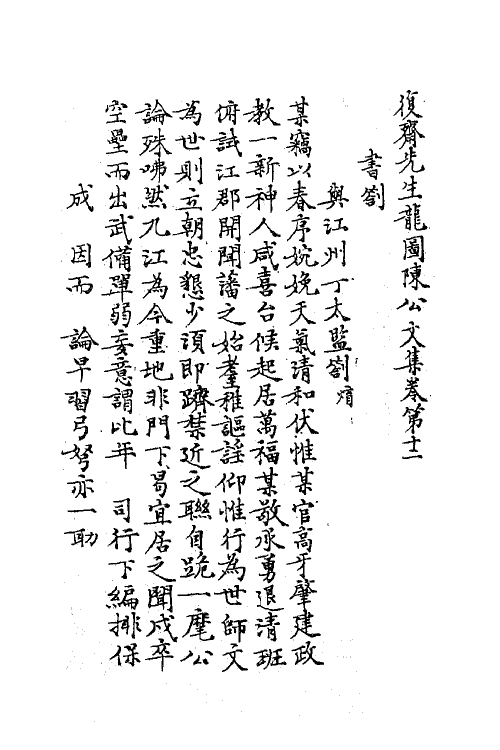 復齋先生龍圖陳公文集卷第十二
書劄
與江州丁太監劄焴
某竊以春序婉娩天氣清和伏惟某官高牙肇建政
教一新神人咸喜台候起居萬福某敬承勇退清班
俯試江郡開閫藩之始耋稚謳謠仰惟行為世師文
為世則立朝忠懇少須即躋禁近之聯自跪一麾公
論殊咈然九江為今重地非門下曷宜居之聞戍卒
空壘而出武備單弱妄意謂比年 司行下編排保
成 因而 論早習弓弩亦一助